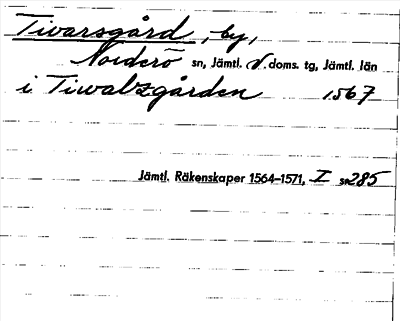 Tivarsgård, by,
Norderö sn, Jämtl. V. doms. tg, Jämtl. län
i Tiwalzgården 1567
Jämtl. Räkenskaper 1564–1571, I s. 285